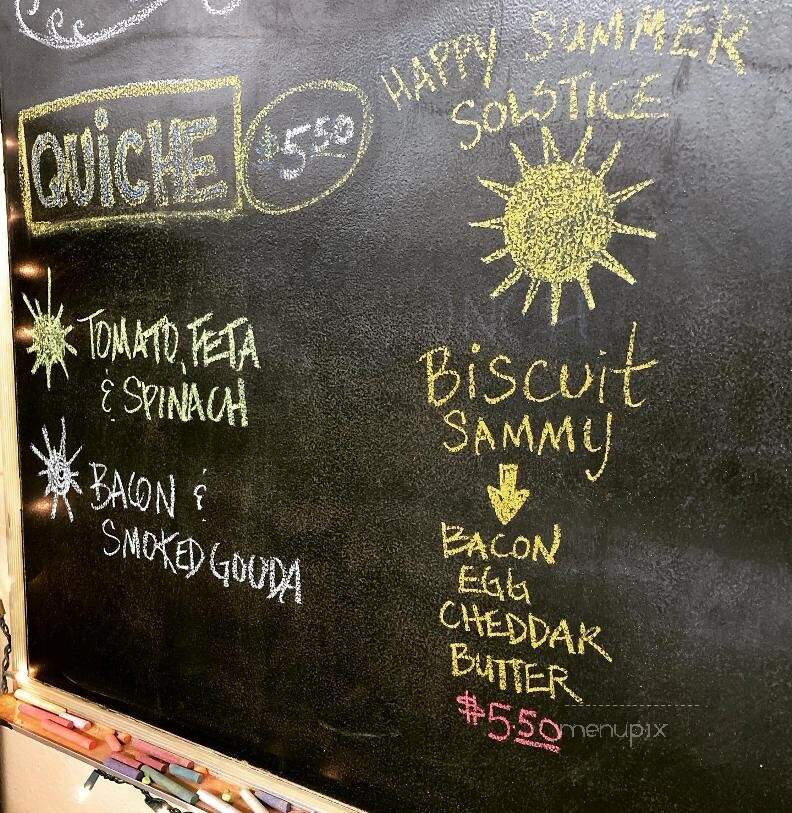 QUiCHE $5.50
TOMATO, FETA
& SPINACH
BACON &
SMOKED GOUDA
HAPPY SUMMER
SOLSTICE
BiSCUit
SAMMY
BACON
EGG
CHEDDAR
BUTTER
$5.50
menupix